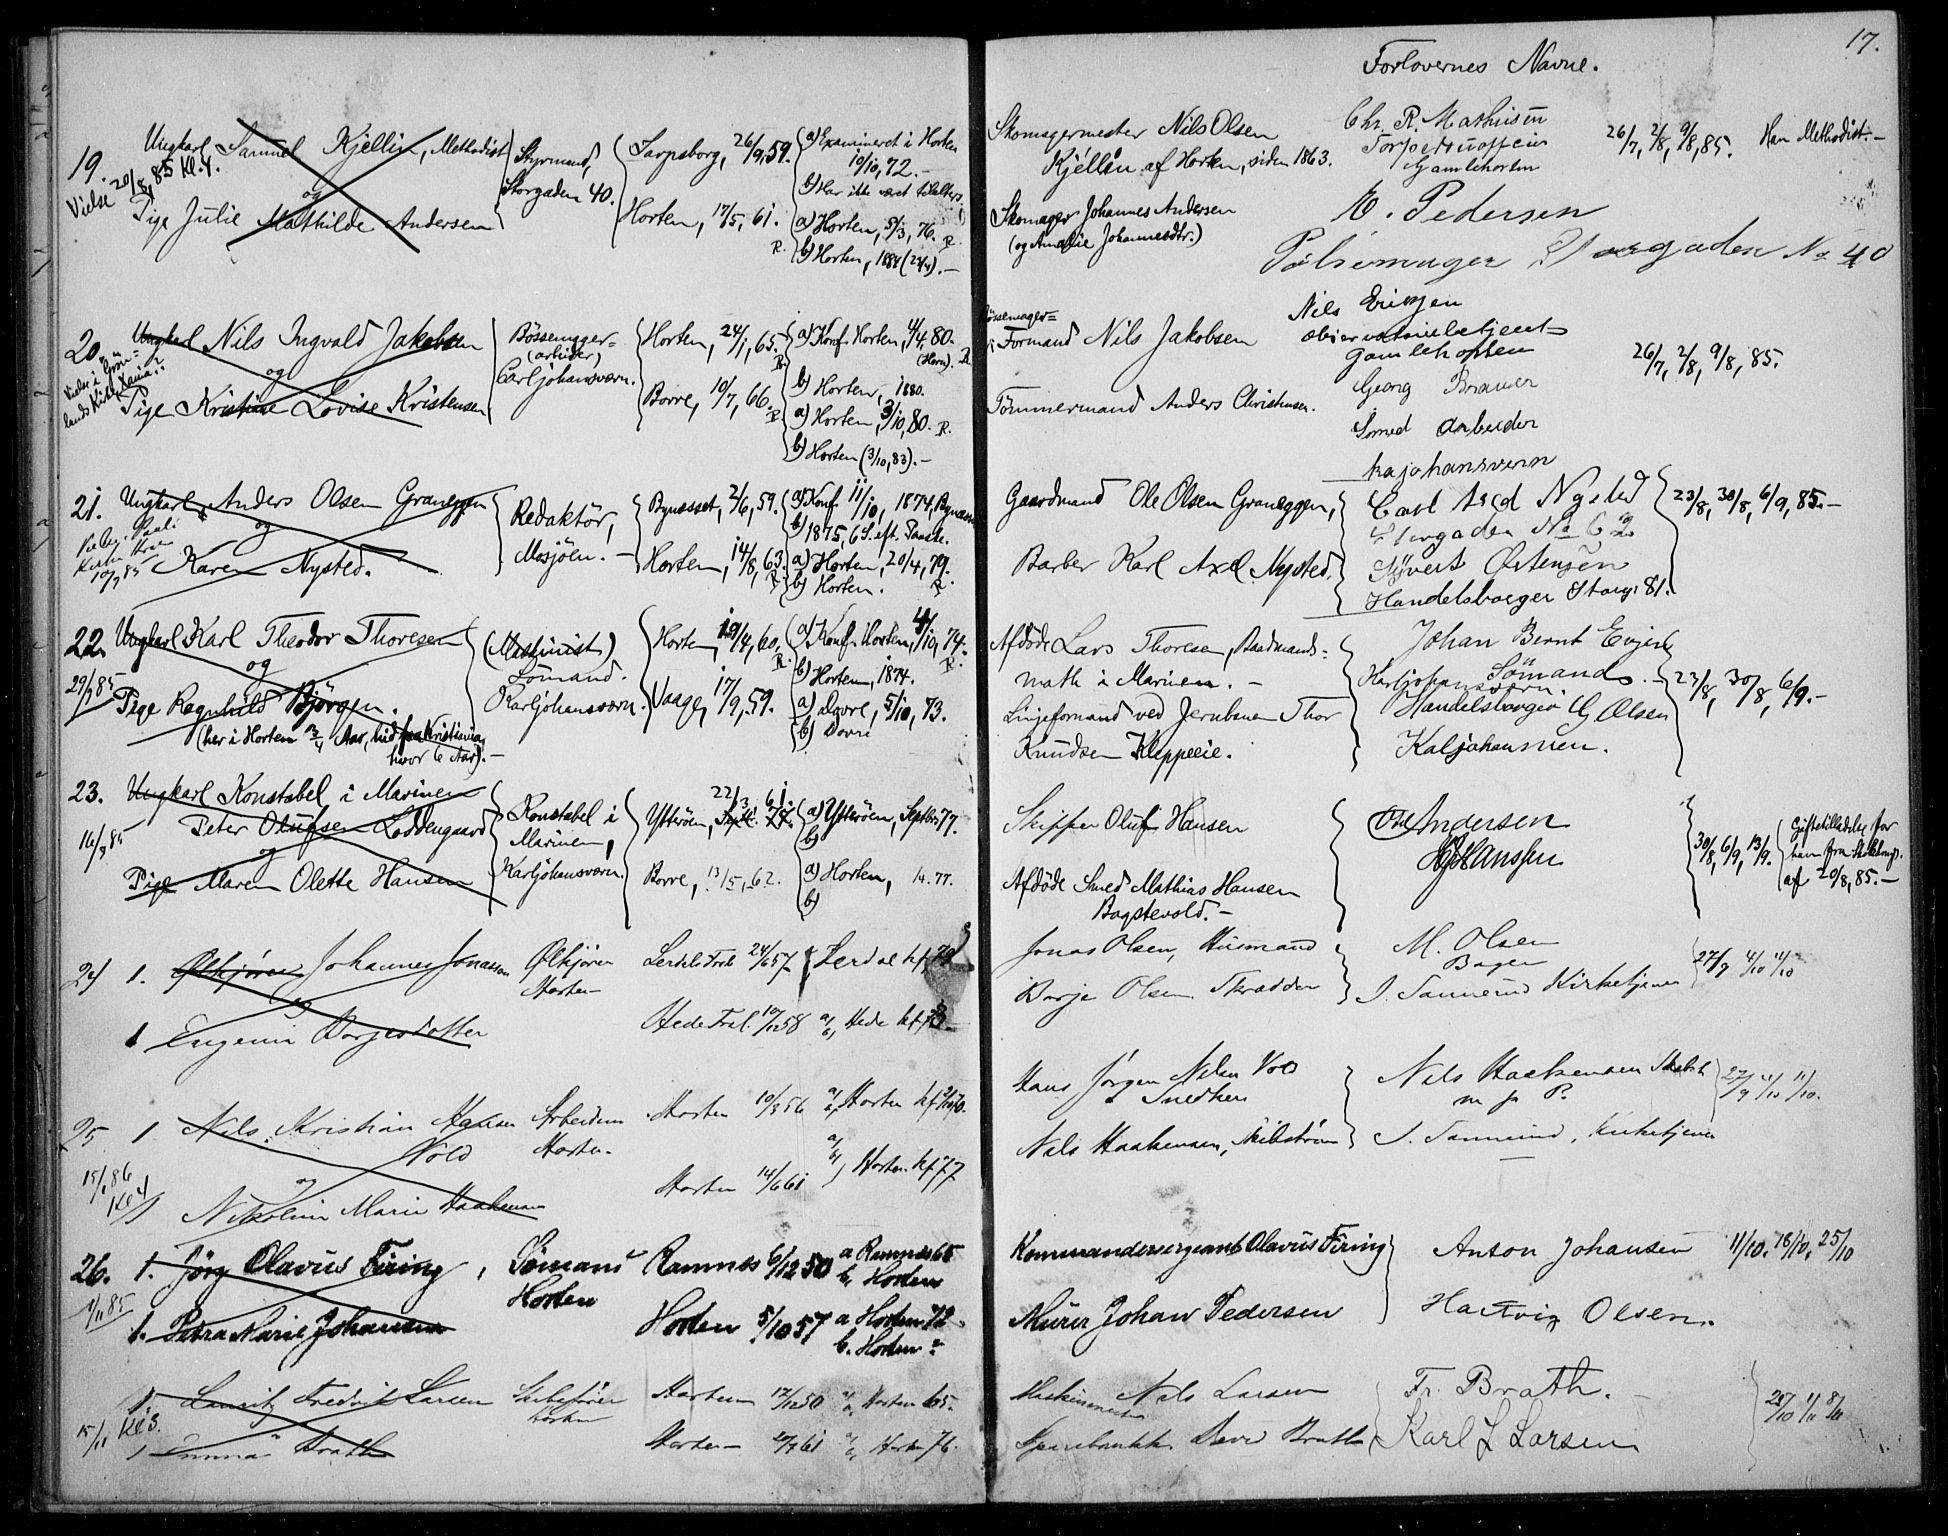 17.
Forlovernes Navne.
19. Ungkarl Samuel Kjellin, Methodist
Vielse 20/8, 85 Kl. 4.
og
Pige Julie Mathilde Andersen
Styrmand,
Storgaden 40.
Sarpsborg, 26/9, 59.
Horten, 17/5, 61.
R.
a) Examineret i Horten
10/10, 72. —
b) Har ikke været tilalters
a) Horten, 5/3, 76. R.
b) Horten, 1884 (24/4). —
Skomagermester Nils Olsen
Kjéllin af Horten, siden 1863.
Skomager Johannes Andersen
(og Amalie Johannesdtr.)
Chr. R. Mathisen
Gamlehorten
E. Pedersen
Pølsemager Storgaden No 40
26/7, 2/8, 9/8, 85. Han Methodist. —
20. Ungkarl Nils Ingvald Jakobsen
Vielse i Grön-
lands Kirke Xania
og
Pige Kristine Lovise Kristensen
Bössemager-
(arbeider)
Carljohansværn.
Horten, 24/1, 65. R.
Borre, 10/7, 66. R.
a) Konf. Horten, 4/4, 80.
(Horn). R.
b) Horten, 1880.
a) Horten, 3/10, 80. R.
b) Horten (3/10, 83). —
Bössemager-
Formand Nils Jakobsen
Tömmermand Anders Christensen.
Nils Eriksen
observatoriebetjent
Gamlehorten
Georg Brauer
Smed Arbeider
kajohansvern
26/7, 2/8, 9/8, 85.
21. Ungkarl Anders Olsen Graneggen
og
10/9 85
Karen Nysted.
Redaktör,
Mosjöen. —
Bynesset, 2/6, 59.
Horten, 14/8, 63. R.
a) Konf. 11/10, 1874, Bynæsset
b) 1875, 6 S. eft. Paaske.
a) Horten, 20/4, 79.
b) Horten. R.
Gaardmand Ole Olsen Graneggen,
Barber Karl Axel Nysted.
Carl Axel Nysted
Storgaden No 62
Syvert Östensen
Handelsborger Storg: 81.
23/8, 30/8, 6/9, 85. —
22. Ungkarl Karl Theodor Thoresen
29/9 85
og
Pige Ragnhild Björgen.
(her i Horten 3/4 Aar, hid fra Kristiania,
hvor 6 Aar). —
(Maskinist)
Sömand.
Karljohansværn.
Horten, 19/4, 60. R.
Vaage, 17/9, 59.
a) Konf. Horten, 4/10, 74. R.
b) Horten, 1874.
a) Dovre, 5/10, 73.
b) Dovre
Afdöde Lars Thoresen, Baadmands-
math i Marinen. —
Linjeformand ved Jernbanen Thor
Knudsen Kleppeeie.
Johan Bernt
Karljohansværn Sömand. —
Handelsborger G Olsen
Kaljohansvern.
23/8, 30/8, 6/9. —
23. Ungkarl Konstabel i Marinen
Peter Olufsen Loddengaard
16/9 85
og
Pige Maren Olette Hansen
Konstabel i
Marinen,
Karljohansværn.
22/3 61.
Ytteröen,
Borre, 13/5, 62.
a) Ytteröen, Septbr. 77.
b)
a) Horten, 14. 77.
b)
Skipper Oluf Hansen
Afdöde Smed Mathias Hansen
Bogstevold. —
Andersen
Hanssen
30/8, 6/9, 13/9.
Giftetilladelse for
ham fra
af 20/8, 85. —
24 1. Ølkjører Johannes Jonasson
og
1 Eugenie Borjesdotter
Ølkjører
Horten
Lerdels Frel 24/6 57
Hede Frel. 10/12 58
Lerdal kf 72
a/b, Hede kf 73
Jonas Olsen, Husmand
Borje Olsen Skrædder
M. Olsen
Bager
J. Tannerud Kirketjener
27/9 4/10 11/10
25 1. Nils Kristian Hansen
Vold
15/1 86
Kl 4
og
1 Nikoline Marie Haakensen
Arbeider
Horten.
Horten 10/8 56
Horten 14/6 61
a/b, Horten kf 2/10 70.
a/b, Horten kf 77
Hans Jørgen Nilsen Vold
Snedker
Nils Haakensen, Skibstømm
Nils Haakensen Skibst
m f P.
J. Tannerud, Kirketjener
27/9 4/10 11/10.
26. 1. Jörg Olavus Firing,
1/11 85
1. Petra Marie Johansen
Sömand
Horten
Ramnes 6/12 50
Horten 5/10 57
a Ramnes 65
b, Horten
a Horten 72
b. Horten
Kommandersergeant Olavus Firing
Murer Johan Pedersen
Anton Johansen
Hartvig Olsen.
11/10, 18/10, 25/10
1. Lauritz Fredrik Larsen
15/11 Kl 3.
1 Emma Brath
Skibsfører
Horten
Horten 17/12 50
Horten —
a/b, Horten 65.
a/b, Horten 76.
Nils Larsen
Brath
Fr. Brath.
Karl L Larsen
25/10 1/11 8/11